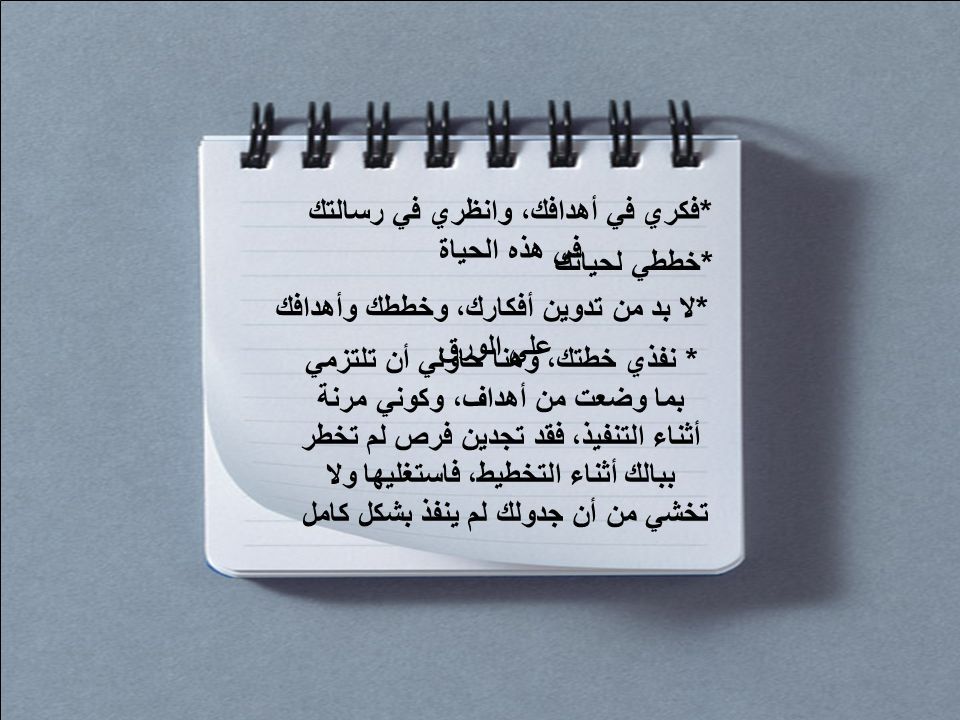 *فكري في أهدافك، وانظري في رسالتك
في هذه الحياة
*خططي لحياتك
*لا بد من تدوين أفكارك، وخططك وأهدافك
على الورق
* نفذي خطتك، وهنا حاولي أن تلتزمي
بما وضعت من أهداف، وكوني مرنة
أثناء التنفيذ، فقد تجدين فرص لم تخطر
ببالك أثناء التخطيط، فاستغليها ولا
تخشي من أن جدولك لم ينفذ بشكل كامل